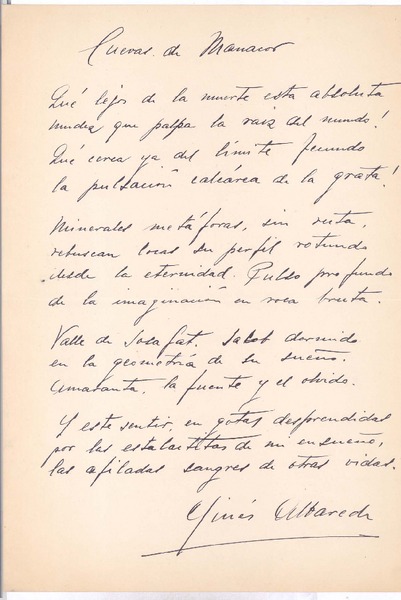 Cuevas de Manacor
Qué lejos de la muerte esta absoluta
mudez que palpa la raiz del mundo!
Qué cerca ya del límite fecundo
la pulsación calcárea de la gruta!
Minerales metáforas, sin ruta,
rebuscan locas su perfil rotundo
desde la eternidad. Pulso profundo
de la imaginación en roca bruta.
Valle de Josafat. Jacob dormido
en la geometría de su sueño.
Amaranta, la fuente y el olvido.
Y este sentir, en gotas desprendidas
por las estalactitas de mi ensueño,
las afiladas sangres de otras vidas.
Ginés Albareda